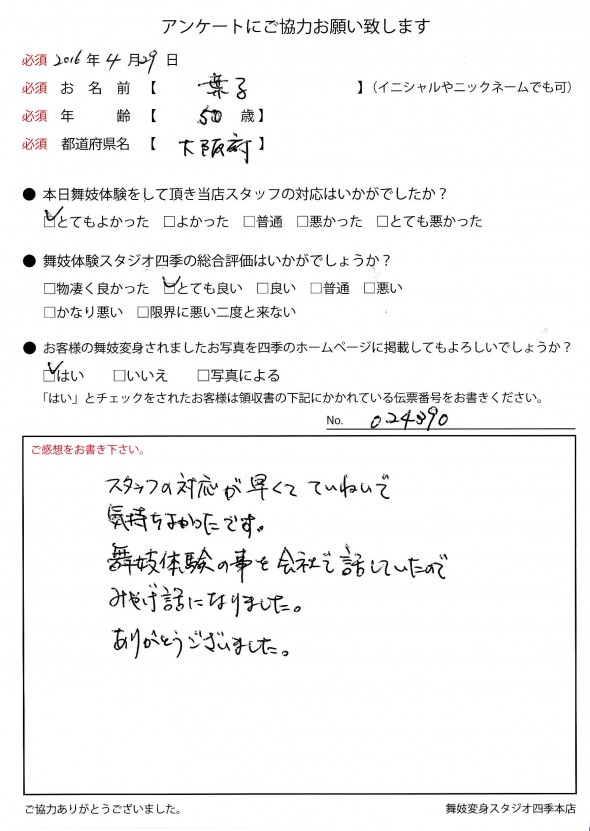 アンケートにご協力お願い致します
必須 2016年 4月29日
必須 お名前【 葉子 】（イニシャルやニックネームでも可）
必須 年齢【 50 歳】
必須 都道府県名【 大阪府 】
● 本日舞妓体験をして頂き当店スタッフの対応はいかがでしたか？
☑とてもよかった □よかった □普通 □悪かった □とても悪かった
● 舞妓体験スタジオ四季の総合評価はいかがでしょうか？
□物凄く良かった ☑とても良い □良い □普通 □悪い
□かなり悪い □限界に悪い二度と来ない
● お客様の舞妓変身されましたお写真を四季のホームページに掲載してもよろしいでしょうか？
☑はい □いいえ □写真による
「はい」とチェックをされたお客様は領収書の下記にかかれている伝票番号をお書きください。
No. 024390
ご感想をお書き下さい。
スタッフの対応が早くて ていねいで
気持ちよかったです。
舞妓体験の事を会社で話していたので
みやげ話になりました。
ありがとうございました。
ご協力ありがとうございました。 舞妓変身スタジオ四季本店